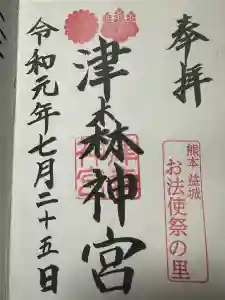 奉拝
熊本 益城
お法使祭の里
津森神宮
令和元年七月二十五日